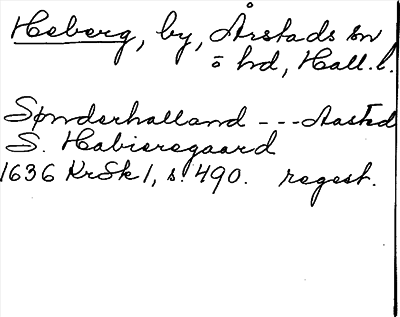 Heberg, by, Årstads sn
o hd, Hall. l.
Sønderhalland --- Aasted
S. Habieregaard
1636 KrSk 1, s. 490. regest.